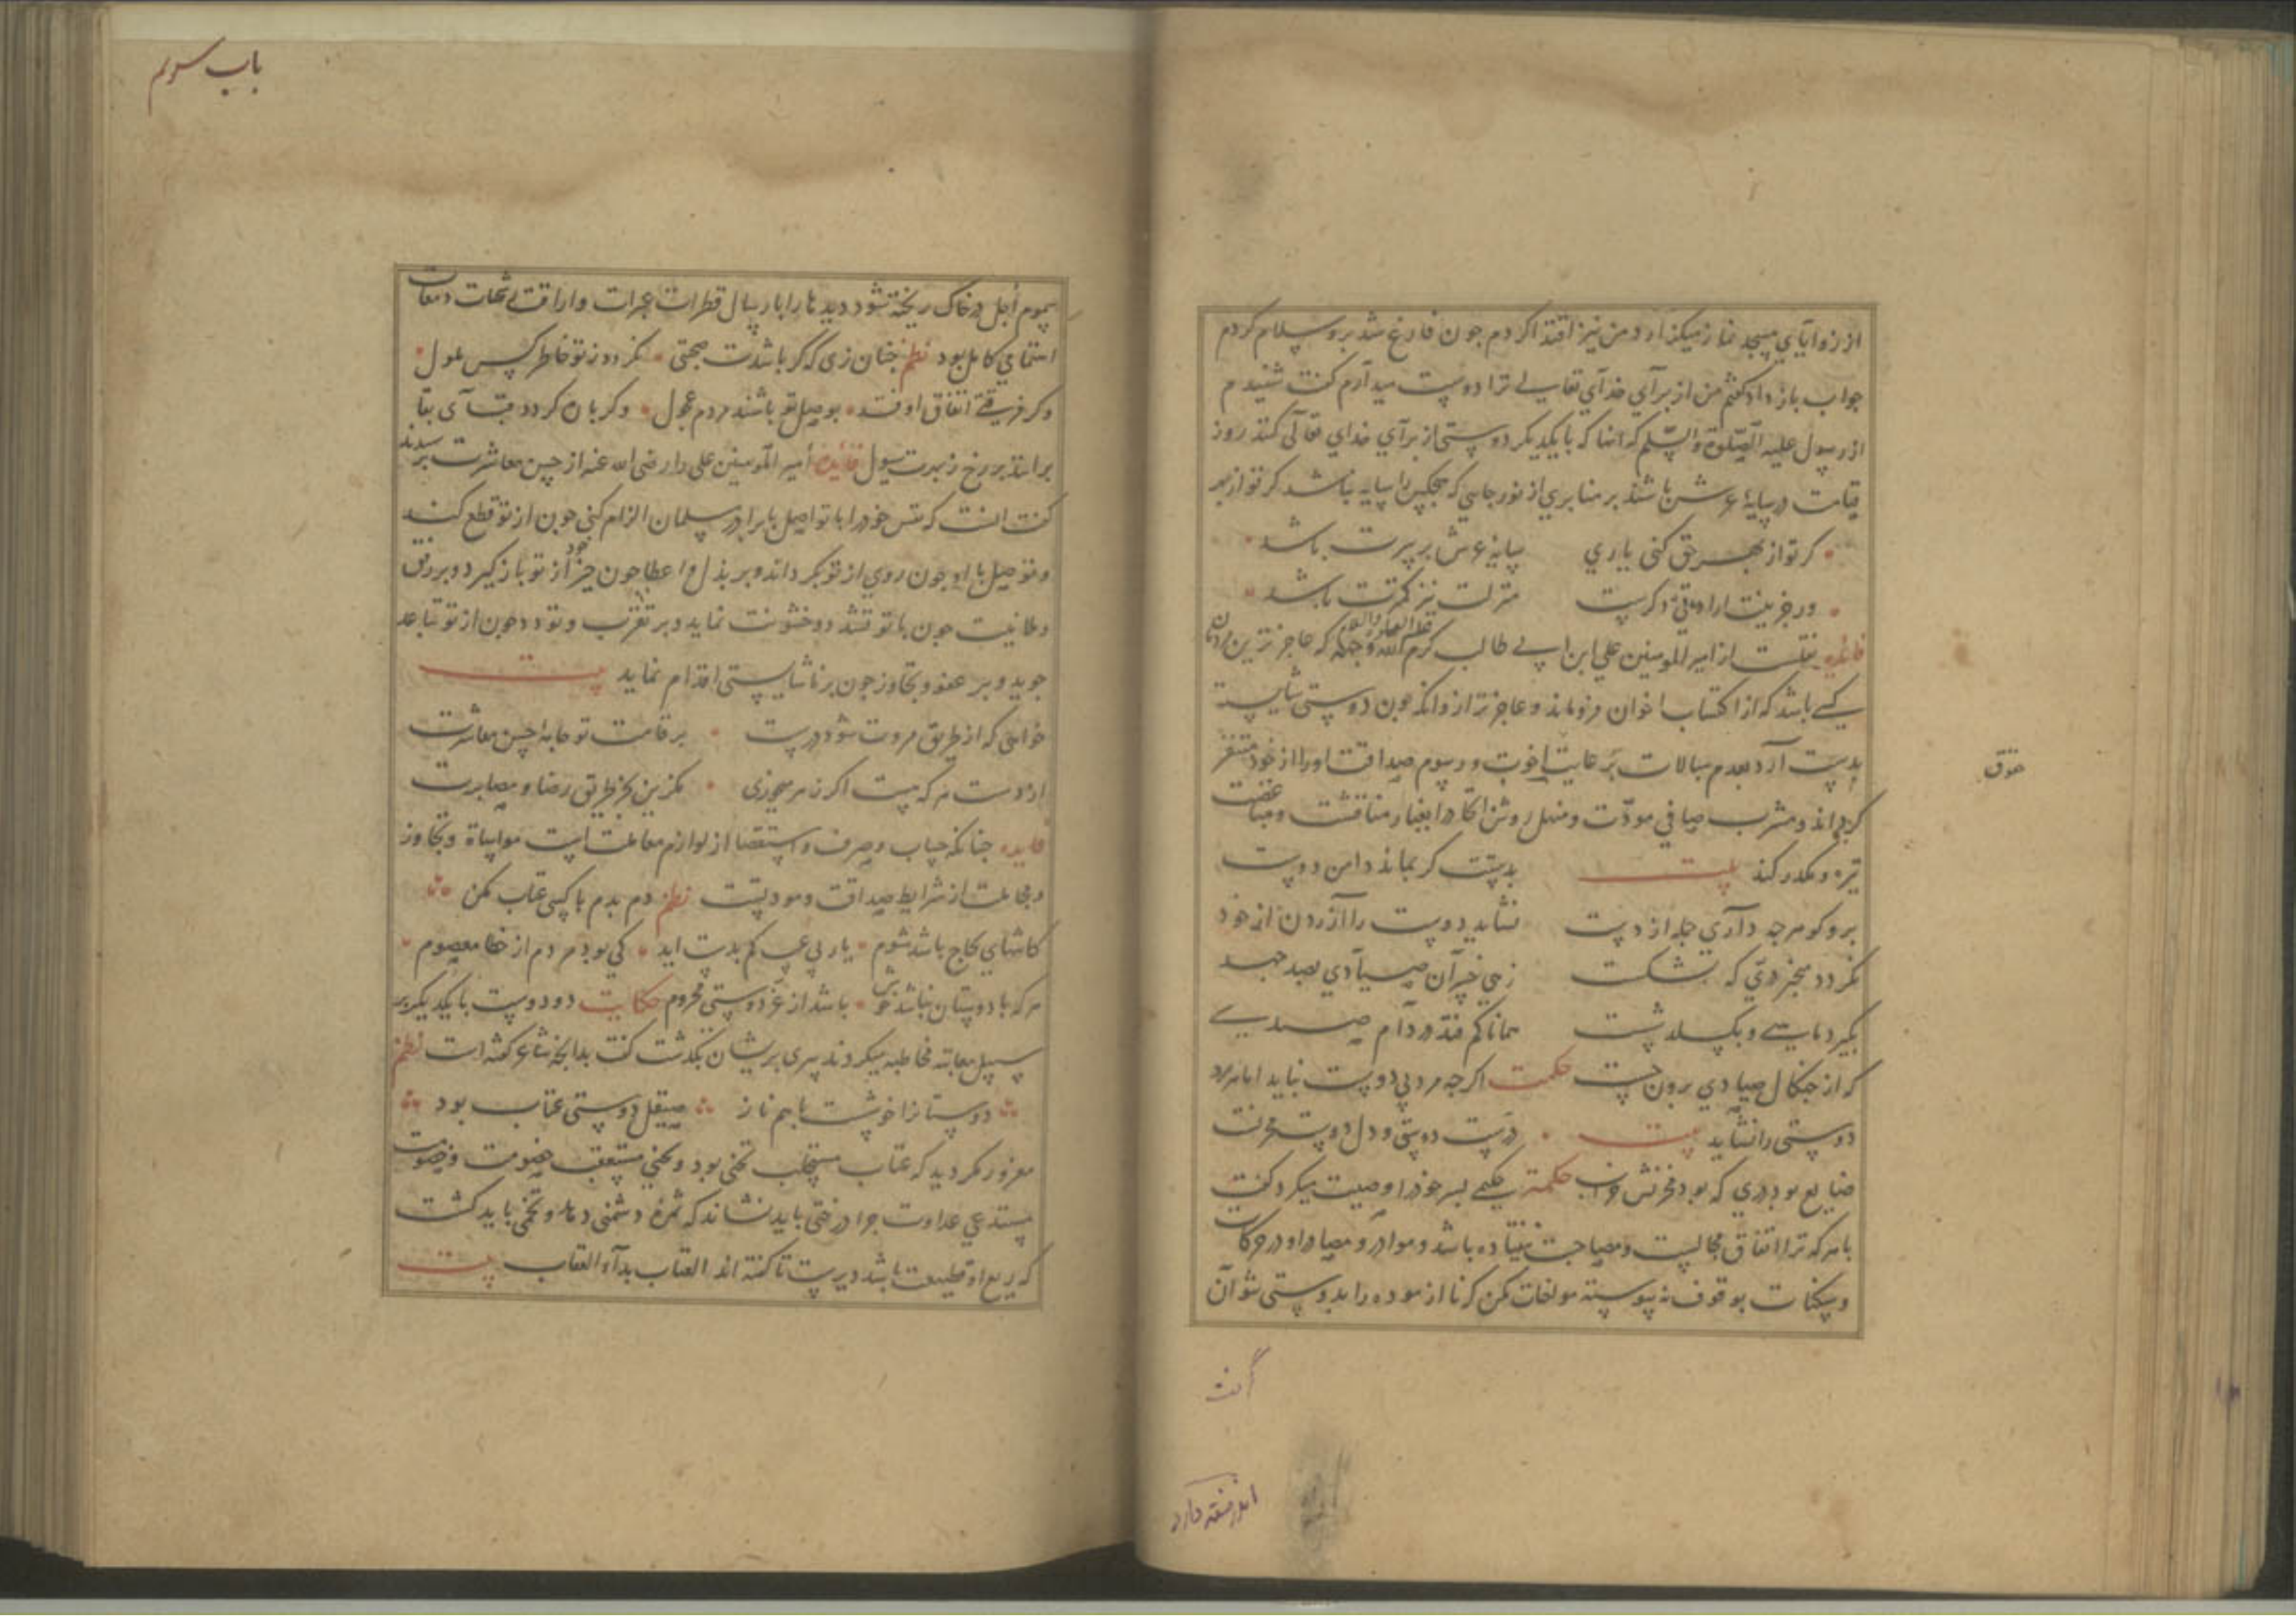 از زوایای مسجد نماز میکزارد من نیز اقتدا کردم جون فارغ شد برو سلام کردم
جواب باز داد کفتم من از برای خدای تعالی ترا دوست میدارم کفت شنیدم
از رسول علیه الصلوة والسلم که انها که با یکدیکر دوستی از برای خدای تعالی کنند روز
قیامت در سایهٔ عرش باشند بر منابری از نور جایی که هیچکس را سایه نباشد
کر تو از بهر حق کنی یاری سایهٔ عرش بر سرت باشد
ور جزینت ارادتی دکرست منزلت نیز کمترت باشد
فایده نقلست از امیر المومنین علی ابن ابی طالب کرم الله وجهه که عاجز ترین مردمان
کسی باشد که از اکتساب اخوان فرو ماند و عاجز تر ازو انکه جون دوستی شایسته
بدست آرد بعدم مبالات برعایت اخوت و رسوم صداقت او را از خود متنفر
کرداند و مشرب صافی مودت و منهل روشن را بغبار مناقشت و
تیره و مکدر کند بیت بدستت کر بماند دامن دوست
برو کو هرجه داری جله از دست نشاید دوست را آزردن از خود
نکردد منجبر دری که بشکست زهی خسران صیادی بصد جهد
بکیرد ماهیی و بکسلد شست همانا کم فتد در دام صیدی
که از جنکال صیادی برون جست حکمت اکرجه مرد بی دوست نباید اما هر مرد
دوستی را نشاید بیت درست دوستی و دل دوست مخزنت
ضایع بود دری که بود مخزنش خراب حکمة حکیمی پسر خود را وصیت میکرد کفت
با هر که ترا اتفاق مجالست و مصاحبت نیفتاده باشد و موارد و مصادر او در حرکات
و سکنات بوقوف نه پیوسته مواخات مکن که نا ازموده را بدوستی نتوان
کرفت
حقوق
باب سوم
بسموم اجل در خاک ریخته شود دیدها را بارسال قطرات عبرات و اراقت رشحات دمعات
استماعی کامل بود نظم جنان زی که کر باشدت صحبتی نکردد ز تو خاطر کس ملول
وکر فرقتی اتفاق اوفتد بوصل تو باشند مردم عجول وکر پاره کردد قبای بقا
برانند بر رخ ز عبرت سیول فایده امیر المومنین علی را رضی الله عنه از حسن معاشرت پرسیدند
کفت انست که نفس خود را با تواصل با برادر مسلمان الزام کنی جون از تو قطع کند
و توصل با او جون روی از تو بکرداند و بر بذل و اعطا جون خیر خود از تو باز کیرد و بر رفق
و طمانیت جون با تو تشدد و خشونت نماید و بر تقرب و تودد جون از تو تباعد
جوید و بر عفو و تجاوز جون بر ناشایستی اقدام نماید بیت
خواهی که از طریق مروت شود درست بر قامت تو جامهٔ حسن معاشرت
از دست هر که هست اکر زهر میخوری مکزین بجز طریق رضا و مصابرت
فایده جنانکه حساب و صرف و استقصا از لوازم معاملت است مواساة و تجاوز
و مجاملت از شرایط صداقت و مودتست نظم دم بدم با کسی عتاب مکن
کاشنای کاج باشد شوم یار بی عیب کم بدست اید کی بود مردم از خطا معصوم
هر که با دوستان نباشد خوش باشد از عز دوستی محروم حکایت دو دوست با یکدیکر بر
سبیل معاتبه مخاطبه میکردند پیری بریشان بکذشت کفت بدانجه شاعر کفته است نظم
دوستانرا خوشست با هم ناز صیقل دوستی عتاب بود
مغرور مکردید که عتاب مستجلب تجنی بود و تجنی مستعقب خصومت و خصومت
مستدعی عداوت جرا درختی باید نشاند که ثمرهٔ دشمنی دهد و تخمی باید کشت
که ریع او قطیعت باشد دیرست تا کفته اند العتاب بداء العقاب بیت